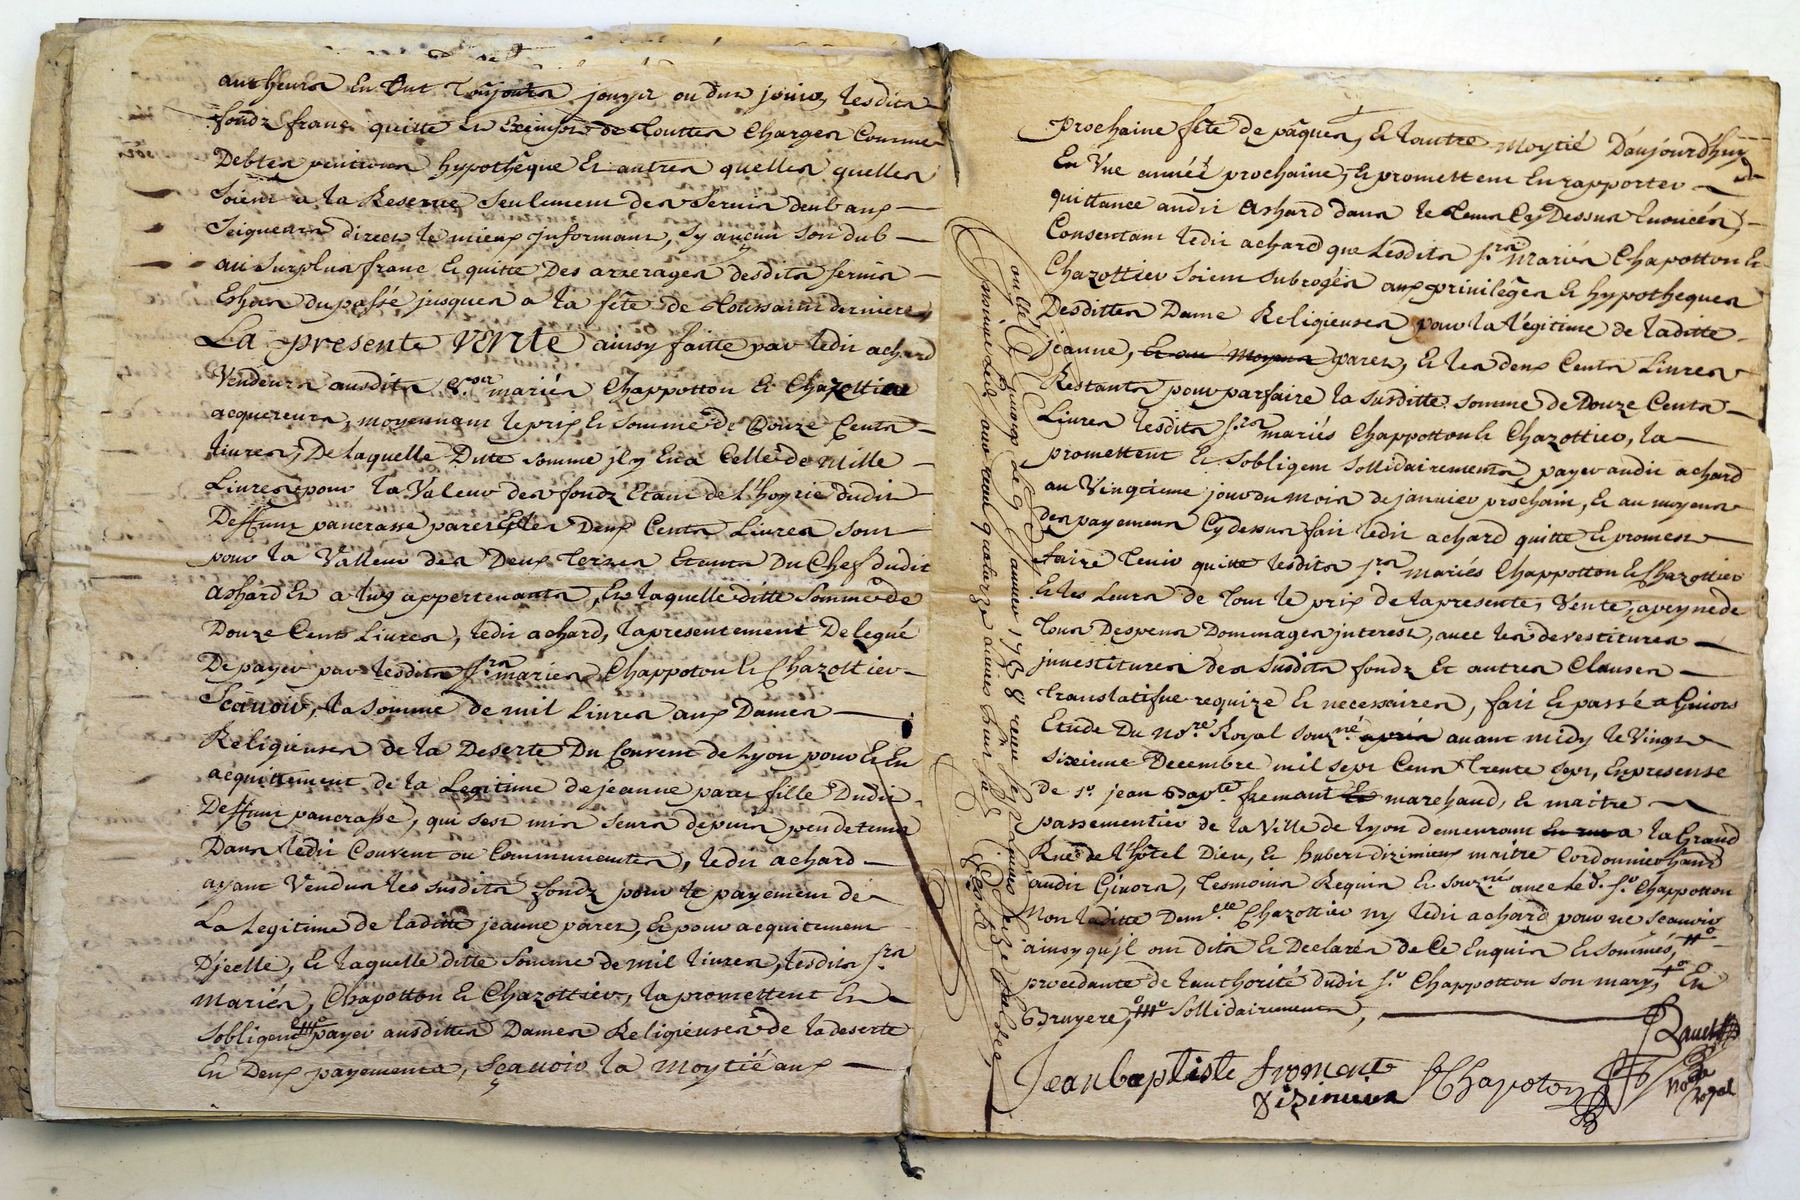 autheurs en ont toujours jouyr ou dus jouir, lesdits
fondz franc quitte et Exempts de touttes Charges Comme
Debtes pentions hypothêque Et autres quelles quelles
soient a la Reserve seulement des servis deub aux
seigneurs directs le mieux jnformant, sy aucun son dub
au surplus franc Et quitte Des arrerages desdits servis
Eshus du passé jusques a la fête de toussaint derniere,
La presente Vente ainsy faitte par ledit achard
Vendeurs ausdits s.rs mariés Chappotton Et Chazottier
acquereurs, moyennant le prix Et somme de Douze Cents
livres, De laquelle Ditte somme jl y En a Celle de mille
Livres pour la Valeur des fondz Etant de l'hoyrie dudit
Deffunt pancrasse paret Et les Deux Cents Livres sont
pour la Valleur des Deux terres Etants Du Chef dudit
achard Et a luy appertenants, Et laquelle ditte somme de
Douze Cents Livres, ledit achard, la presentement Delegué
De payer par lesdits s.rs mariés Chappoton Et Chazottier
Sçavoir, la somme de mil Livres aux Dames
Religieuses de la Deserte Du Couvent de Lyon pour Et En
acquittement de la Legitime de jeanne paret fille Dudit
Deffunt pancrasse, qui sest mis seurs depuis peu de tems
Dans ledit Couvent ou Communeautes, ledit achard
ayant Vendus les susdits fondz pour le payement de
La Legitime de laditte jeanne paret, Et pour acquitement
D'jcelle, Et laquelle ditte somme de mil livres, lesdits s.rs
Mariés, Chapotton Et Chazottier, la promettent Et
sobligent payer ausdittes Dames Religieuses de la deserte
En Deux payements, Sçavoir la Moytié aux
prochaine fête de pâques, Et lautre Moytié D'aujourdhuy
En Vne année prochaine, Et promettent En rapporter
quittance audit Achard dans le tems Cy Dessus Enoncés,
Consentant ledit achard que Lesdits s.rs Mariés Chapotton Et
Chazottier soient subrogés aux privilêges Et hypotheques
Desdittes Dame Religieuses pour la légitime de laditte
jeanne, Et au Moyens paret, Et les deux Cents Livres
Restants pour parfaire la susditte somme de Douze Cents
Livres lesdits s.rs mariés Chappotton Et Chazottier, la
promettent Et sobligent sollidairements payer audit achard
au Vingtieme jour du mois de janvier prochain, Et au moyens
des payemens Cy dessus fait ledit achard quitte Et promest
faire tenir quitte lesdits s.rs mariés Chappotton Et Chazottier
Et les Leurs de tout le prix de la presente, Vente, a peyne de
tous Despens Dommages jnterest, avec les devestitures
jnvestitures des susdits fondz Et autres Clauses
translatifue requize Et necessaires, fait Et passé a Givors
Etude Du No.re Royal souz.né apres avant midy le Vingt
sixieme Decembre mil sept Cens trente sept, En presense
de s.r jean Bap.te fremont Et marchand, Et maitre
passementier de la Ville de Lyon demeurant En rue a la Grand
Rue de l'hôtel Dieu, Et hubert dizimieux maitre Cordonnier hand
audit Givors, tesmoins Requis Et souz.nés avec le d. s.r Chappotton
Non laditte Dem.lle Chazottier ny ledit achard pour ne sçavoir
ainsy qu'jl ont dits Et Declarés de Ce Enquis Et sommés,
procedante de lauthorité dudit s.r Chappotton son mary, En
Bruyere, sollidairements,
Jean baptiste fromont
Dizimieux
Chapoton
Not.re royal